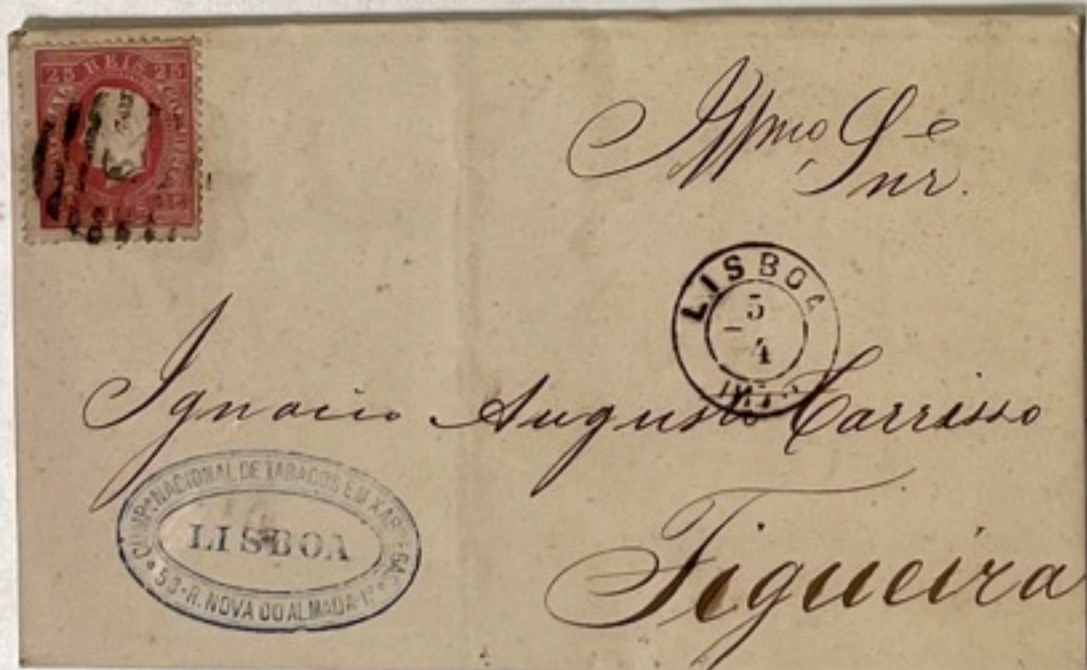 25 REIS 25
Illmo Snr. e
LISBOA
5
4
Ignacio Augusto Carrisso
COMP.ª NACIONAL DE TABACOS EM XABREGAS
LISBOA
53-R. NOVA DO ALMADA-1º
Figueira